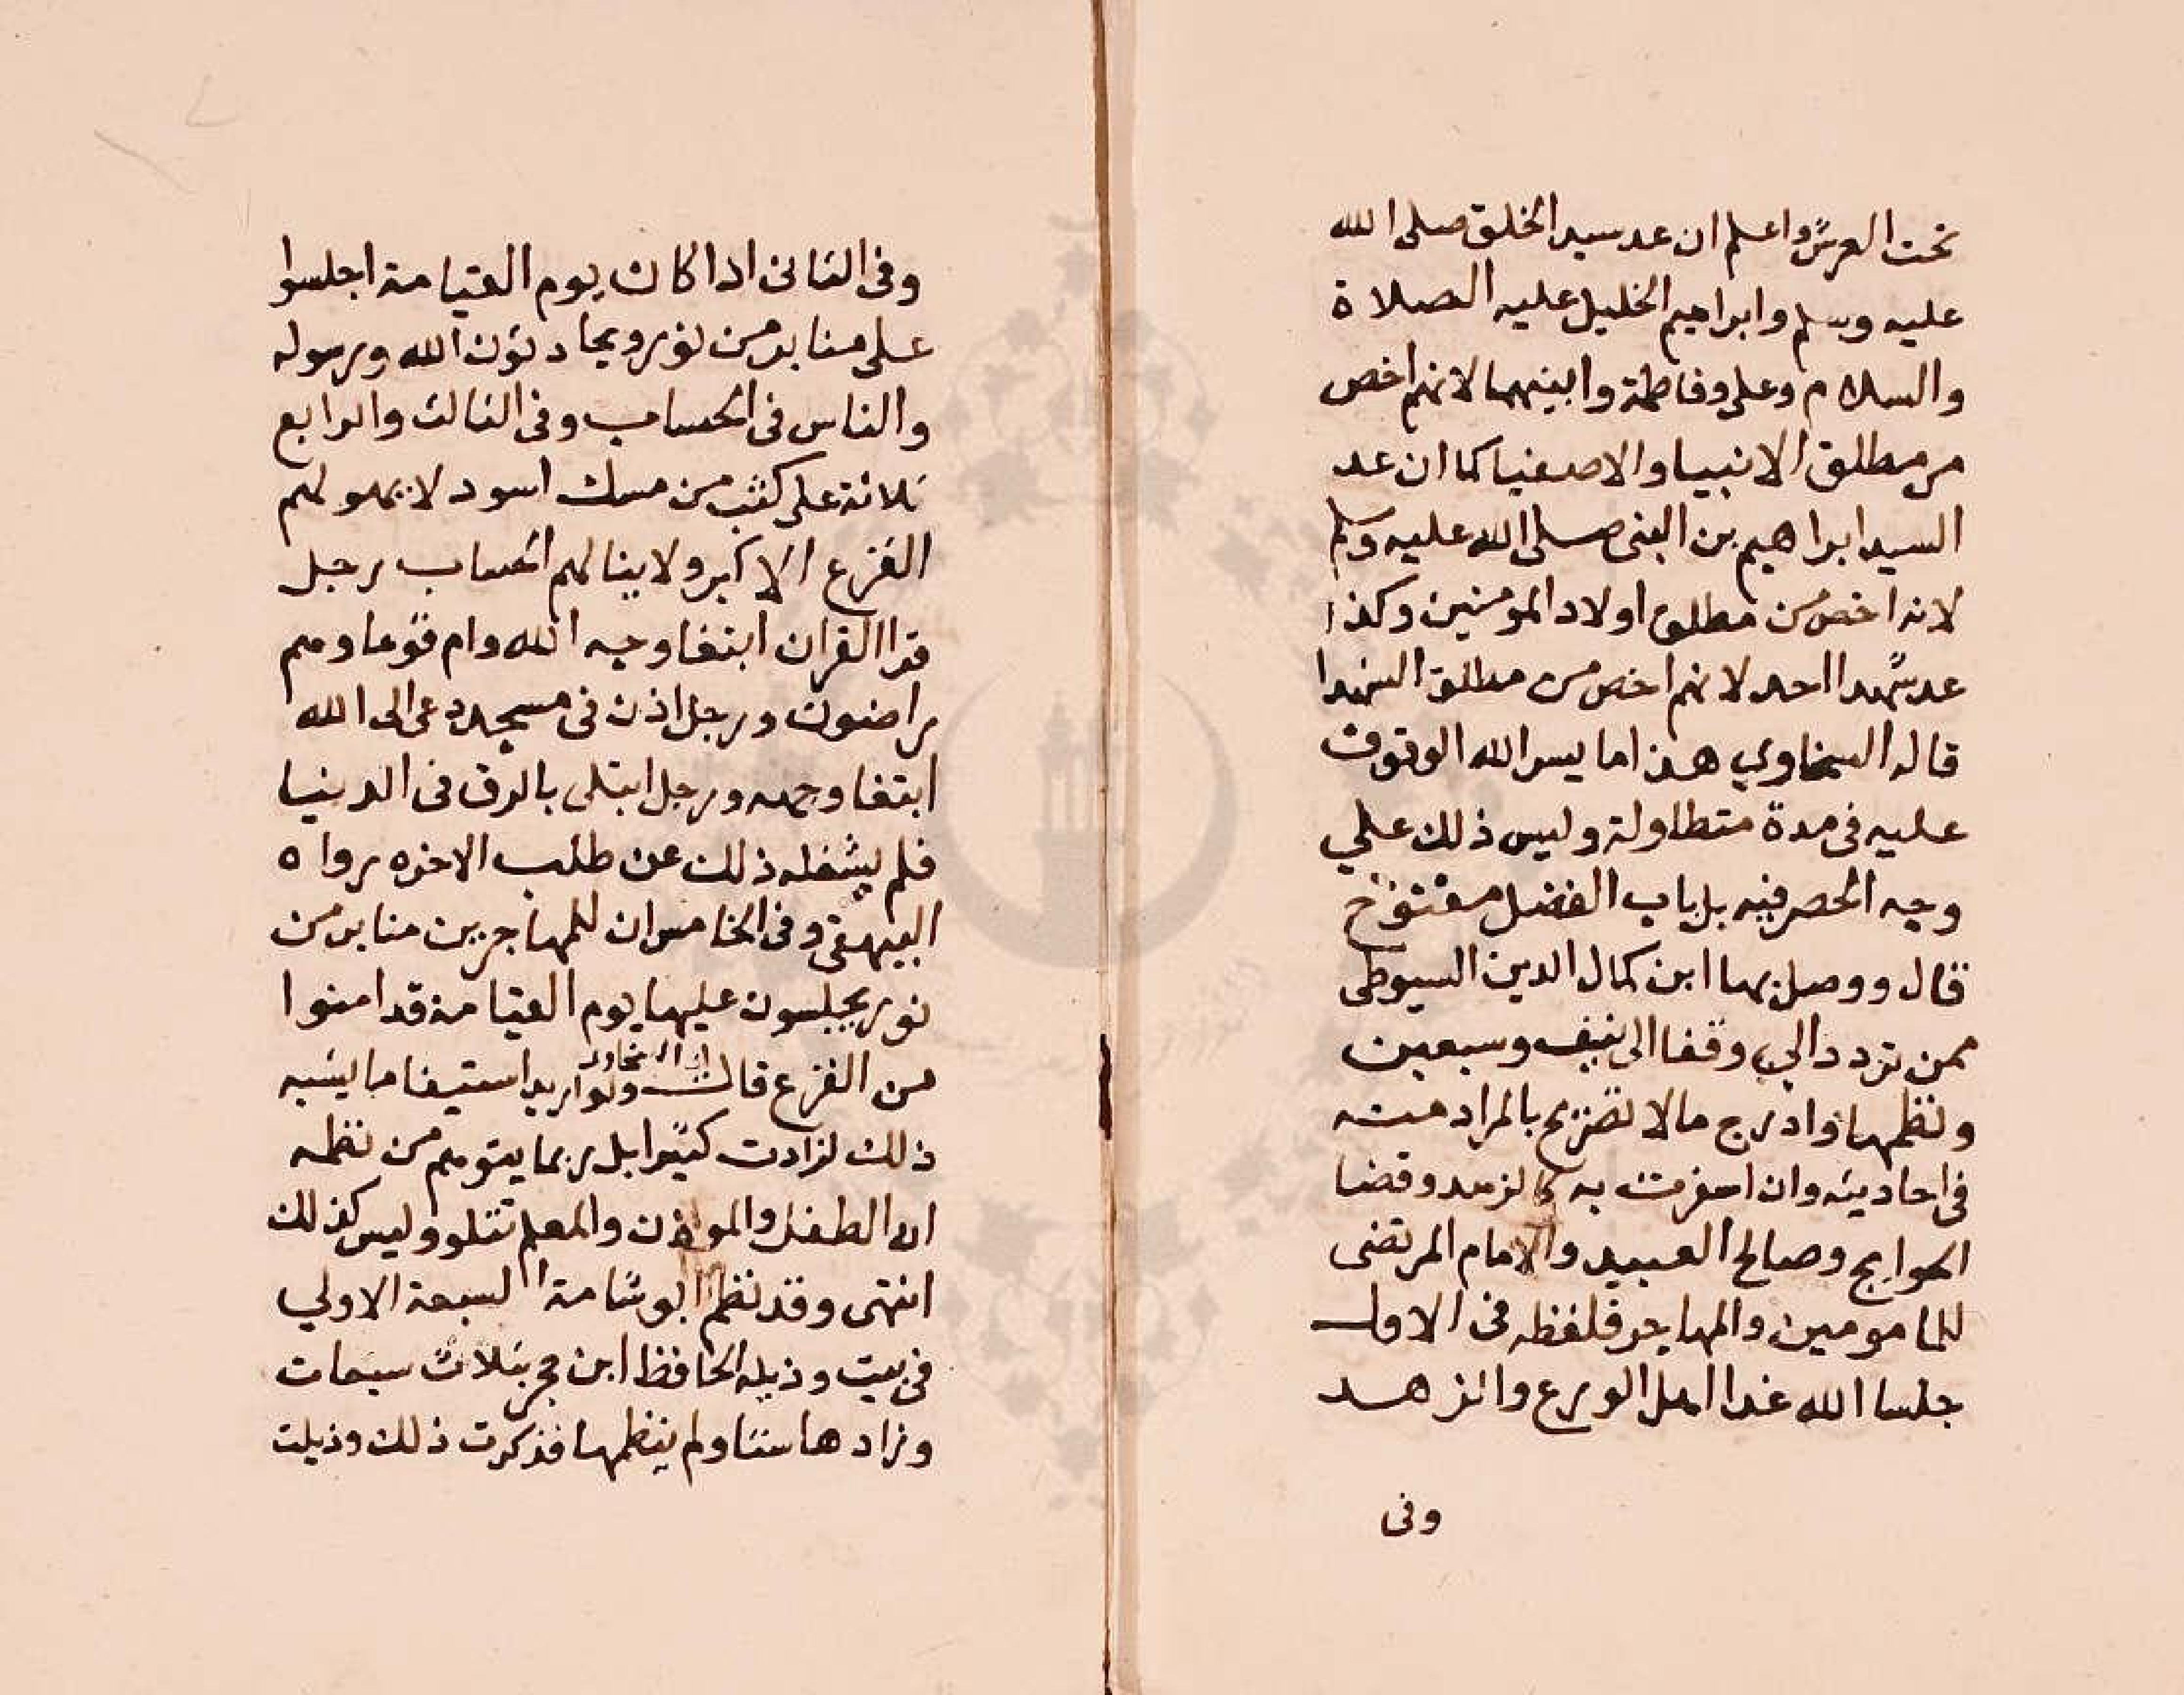 تحت العرش واعلم ان عد سيد الخلق صلى الله
عليه وسلم وابراهيم الخليل عليه الصلاة
والسلام وعلي وفاطمة وابنيهما لانهم اخص
من مطلق الانبيا والاصفيا كما ان عد
السيد ابراهيم بن النبى صلى الله عليه وسلم
لانه اخص من مطلق اولاد المومنين وكذا
عد شهدا احد لانهم اخص من مطلق الشهدا
قاله السخاوي هذا ما يسر الله الوقوف
عليه فى مدة متطاولة وليس ذلك علي
وجه الحصر فيه بل باب الفضل مفتوح
قال ووصل بها ابن كمال الدين السيوطى
ممن تردد الي وقفا الى نيف وسبعين
ونظمها وادرج مالا تصريح بالمراد منه
فى احاديثه وان اشعرت به كالزهد وقضا
الحوايج وصالح العبيد والامام المرتضى
للمامومين والمهاجر فلفظه فى الاول
جلسا الله غدا اهل الورع والزهد
وفى
وفى الثانى اذا كان يوم القيامة اجلسوا
على منابر من نور ويحادثون الله ورسوله
والناس فى الحساب وفى الثالث والرابع
ثلاثة على كثب من مسك اسود لا يهولهم
الفزع الاكبر ولا ينالهم الحساب رجل
قرا القران ابتغا وجه الله وام قوما وهم
راضون ورجل اذن فى مسجد دعى الى الله
ابتغا وجهه ورجل ابتلى بالرق فى الدنيا
فلم يشغله ذلك عن طلب الاخره رواه
البيهقى وفى الخامس ان للمهاجرين منابر من
نور يجلسون عليها يوم القيامة قد امنوا
من الفزع قال السخاوى ولو اريد استيفا ما يشبه
ذلك لزادت كثيرا بل ربما يتوهم من نظمه
ان الطفل والموذن والمعلم تتلو وليس كذلك
انتهى وقد نظم ابو شامة السبعة الاولي
فى بيت وذيله الحافظ ابن حجر بثلاث سبعات
وزادها ستا ولم ينظمها فذكرت ذلك وذيلت